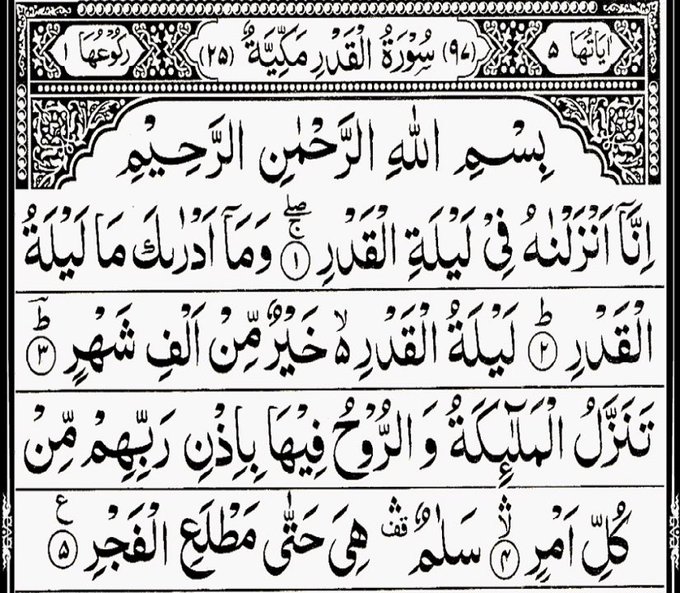 اٰيَاتُهَا ۵ (۹۷) سُوْرَةُ الْقَدْرِ مَكِّيَّةٌ (۲۵) رُكُوْعُهَا ۱
بِسْمِ اللّٰهِ الرَّحْمٰنِ الرَّحِيْمِ
اِنَّاۤ اَنْزَلْنٰهُ فِيْ لَيْلَةِ الْقَدْرِ ۚۖ ﴿۱﴾ وَمَاۤ اَدْرٰىكَ مَا لَيْلَةُ
الْقَدْرِ ؕ ﴿۲﴾ لَيْلَةُ الْقَدْرِ ۙ۵ خَيْرٌ مِّنْ اَلْفِ شَهْرٍ ؕؔ ﴿۳﴾
تَنَزَّلُ الْمَلٰٓئِكَةُ وَ الرُّوْحُ فِيْهَا بِاِذْنِ رَبِّهِمْ مِّنْ
كُلِّ اَمْرٍ ۛ ﴿۴﴾ سَلٰمٌ قف هِيَ حَتّٰى مَطْلَعِ الْفَجْرِ ﴿۵﴾ ع